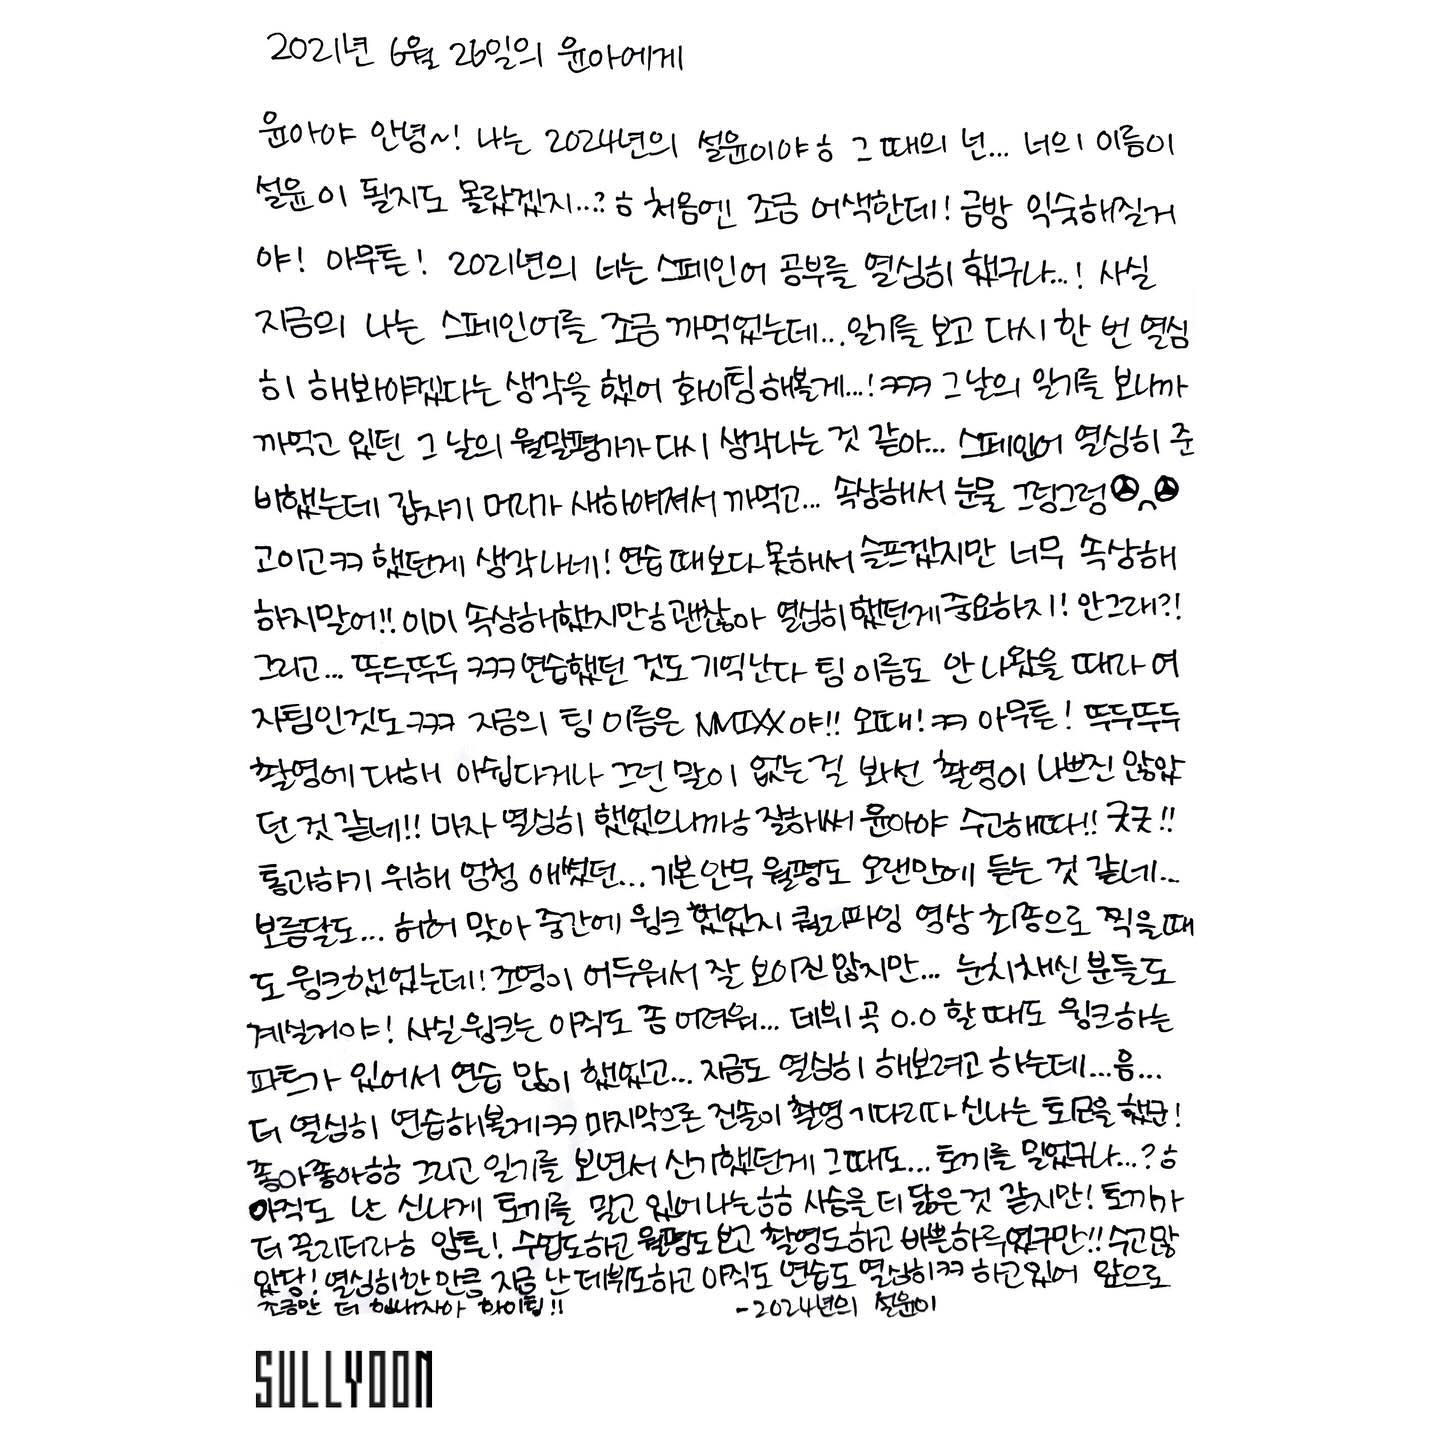 2021년 6월 26일의 윤아에게
윤아야 안녕~! 나는 2024년의 설윤이야ㅎ 그 때의 넌... 너의 이름이
설윤이 될지도 몰랐겠지...?ㅎ 처음엔 조금 어색한데! 금방 익숙해질거
야! 아무튼! 2021년의 너는 스페인어 공부를 열심히 했구나...! 사실
지금의 나는 스페인어를 조금 까먹었는데... 일기를 보고 다시 한 번 열심
히 해봐야겠다는 생각을 했어 화이팅해볼게...!ㅋㅋㅋ 그날의 일기를 보니까
까먹고 있던 그 날의 월말평가가 다시 생각나는 것 같아... 스페인어 열심히 준
비했는데 갑자기 머리가 새하얘져서 까먹고... 속상해서 눈물 그렁그렁
고이고ㅋㅋ 했던게 생각나네! 연습 때보다 못해서 슬프겠지만 너무 속상해
하지말어!! 이미 속상해했지만ㅎ괜찮아 열심히 했던게 중요하지! 안그래?!
그리고... 뚜두뚜두 ㅋㅋㅋ연습했던 것도 기억난다 팀 이름도 안 나왔을 때라 여
자팀인것도ㅋㅋㅋ 지금의 팀 이름은 NMIXX야!! 오때!ㅋㅋ 아무튼! 뚜두뚜두
촬영에 대해 아쉽다거나 그런 말이 없는걸 봐선 촬영이 나쁘진 않았
던 것 같네!! 마자 열심히 했었으니까ㅎ 잘해써 윤아야 수고해따!! 굿굿!!
통과하기 위해 엄청 애썼던... 기본안무 월평도 오랜만에 듣는 것 같네...
보름달도... 허허 맞아 중간에 윙크 했었지 퀄리파잉 영상 최종으로 찍을 때
도 윙크했었는데! 조명이 어두워서 잘 보이진 않지만... 눈치채신 분들도
계실거야! 사실 윙크는 아직도 좀 어려워... 데뷔 곡 O.O 할 때도 윙크하는
파트가 있어서 연습 많이 했었고... 지금도 열심히 해보려고 하는데...음...
더 열심히 연습해볼게ㅋㅋ 마지막으론 진솔이 촬영 기다리다 신나는 토모을 했군!
좋아좋아ㅎㅎ 그리고 일기를 보면서 신기했던게 그때도... 토끼를 밀었구나...?ㅎ
아직도 난 신나게 토끼를 밀고 있어 나는ㅎㅎ 사슴을 더 닮은 것 같지만! 토끼가
더 끌리더라ㅎ 암튼! 수업도하고 월평도 보고 촬영도하고 바쁜하루였구만!! 수고많
았당! 열심히한 만큼 지금 난 데뷔도하고 아직도 연습도 열심히ㅋㅋ 하고있어 앞으로
조금만 더 힘내자아 화이팅!! -2024년의 설윤이
SULLYOON